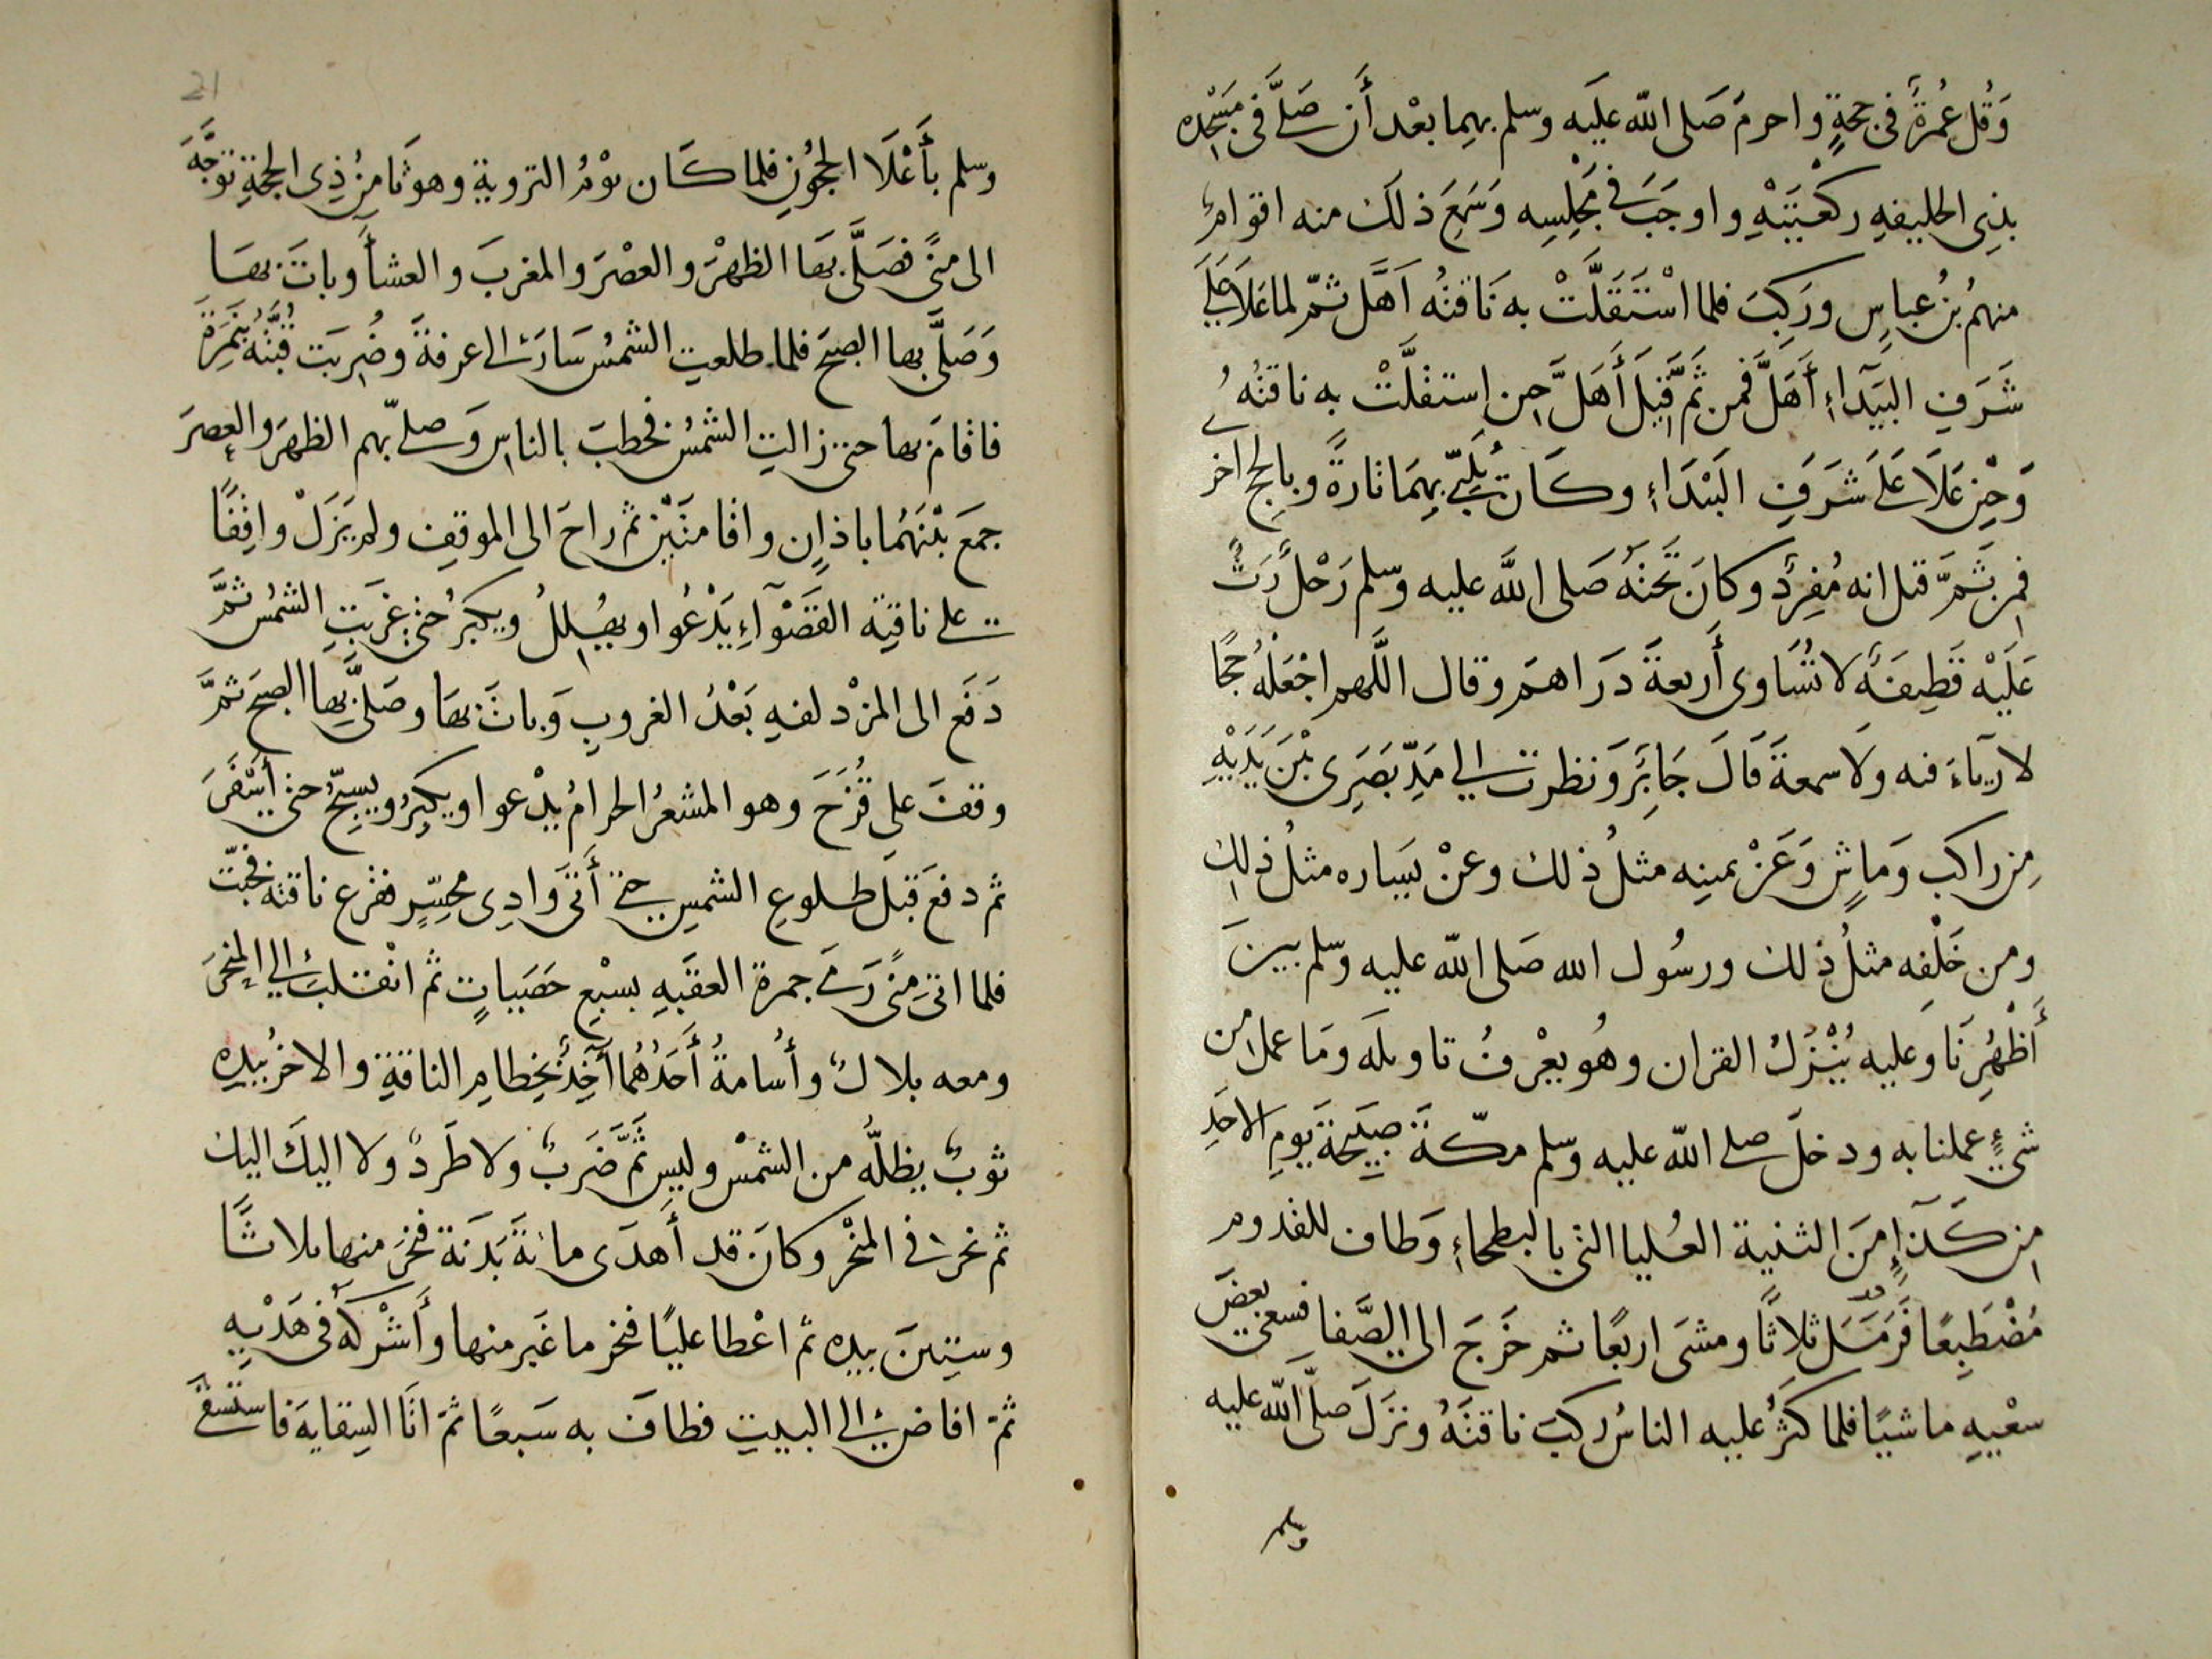 وَقُل عُمرَةً فى حجةٍ واحرمَ صَلى الله عليَه وسلم بهِما بعْد أَن صَلَّى فى مَسْجِدِه
بذِى الحليفهِ ركعْتَيْهِ واوجَبَ فى مَجْلِسِه وَسَمِعَ ذلكَ منه اقوامٌ
منهمُ بنُ عباسٍ ورَكِبَ فلما اسْتَقَلَّتْ به نَاقتهُ اَهَلَّ ثمّ لما عَلَا عَلَى
شَرَفِ البَيْدَآءِ أَهَلَّ فمن ثَمَّ قِيلَ أَهَلَّ حين استقلَّتْ به ناقتُهُ
وَحِيْنَ عَلَا عَلَى شَرَفِ البَيْدَاءِ وكَانَ يُلَبِّى بهِمَا تارةً وبالحج اخرى
فمن ثَمَّ قيل انه مُفرِدٌ وكانَ تَحْتَهُ صَلى اللَّه عليه وسلم رَحْلٌ رَثٌّ
عَلَيْه قَطِيفَةٌ لا تُسَاوى أَربعةَ دَراهمَ وقال اللَّهم اجْعَلْهُ حَجًّا
لا رياءَ فيه ولَا سمعةَ قَالَ جَابِرٌ ونظرت الى مَدِّ بَصَرِى بيْنَ يَدَيْهِ
مِن راكب وَماشٍ وَعَنْ يمينِه مثلُ ذلك وعنْ يَسَاره مثلُ ذلك
ومن خَلْفِه مثلُ ذلك ورسُول الله صَلى الله عليه وسلم بين
أَظْهُرِنَا وَعليه يُنْزَلُ القران وهُو يعْرفُ تاويلَه ومَا عمل من
شىءٍ عملنا به ودخلَ صلى الله عليه وسلم مكّةَ صبيحَةَ يومِ الاحَدِ
من كَدَآءٍ منَ الثنية العُليا التى بالبطحاءِ وَطاف للقدوم
مُضْطَبِعًا فَرَمَلَ ثلاثًا ومشىَ اربعًا ثم خَرَجَ الى الصَّفا فسعى بعضَ
سعْيِهِ ماشيًا فلما كثرُ عليه الناسُ ركبَ ناقتَهُ ونزَلَ صلَّى اللّه عليه
وسلم
21
وسلم بأَعْلَا الحجُونِ فلما كَان يَوْمُ التروية وهو ثامنُ ذِى الحجةِ توَجَّهَ
الى منًى فصَلَّى بهَا الظهرَ والعصْرَ والمغربَ والعشأَ وباتَ بهَا
وَصَلَّى بها الصبحَ فلما طلعتِ الشمسُ سَارَ الى عرفةَ وضُرِبَت قُبَّتُهُ بنَمِرَةَ
فاقامَ بها حتى زالتِ الشمسُ فخطبَ بالناسِ وَصلىّ بهم الظهرَ والعصرَ
جمَعَ بيْنَهُما باذانٍ واقامتَيْنِ ثم راحَ الى الموقِفِ ولم يَزَلْ واقِفًا
على ناقتِه القَصْوَآءِ يَدْعُوا ويهُلِلُ ويكبرُ حتى غربَتِ الشمسُ ثمَّ
دَفَع الى المزْدلفهِ بَعْدَ الغروبِ وَباتَ بهَا وصَلَّى بها الصبحَ ثمَّ
وقفَ على قُزَحَ وهو المشعرُ الحرامُ يدْعوا ويكبِرُ ويسبِّحُ حتى أَسْفَرَ
ثم دفعَ قبلَ طلوعِ الشمسِ حتى أَتَى وَادِى محسِّرٍ فقرع ناقته فخبّت
فلما اتى مِنًى رَمَى جمرة العقبَهِ بسبْعِ حَصَيَاتٍ ثم انْقلبَ الى المنحَرَ
ومعه بلالٌ وأُسامةُ أَحَدُهُما آخِذٌ بخِطامِ الناقةِ والاخرُ بيدِهِ
ثوبٌ يظلُّه من الشمْس وليس ثَمَّ ضَربٌ ولا طَردٌ ولا اليكَ اليك
ثم نحرَ فى المنحْر وكانَ قد أَهدَى مائةَ بَدَنَة فنحَرَ منها ثلاثًا
وستينَ بيده ثم اعْطا عليًا فنحر ما غَبر منها وأَشْركَهُ فى هَدْيِهِ
ثمّ افاضَ الى البيتِ فطافَ به سَبعًا ثمّ اتَا السِقايةَ فاستسقَى